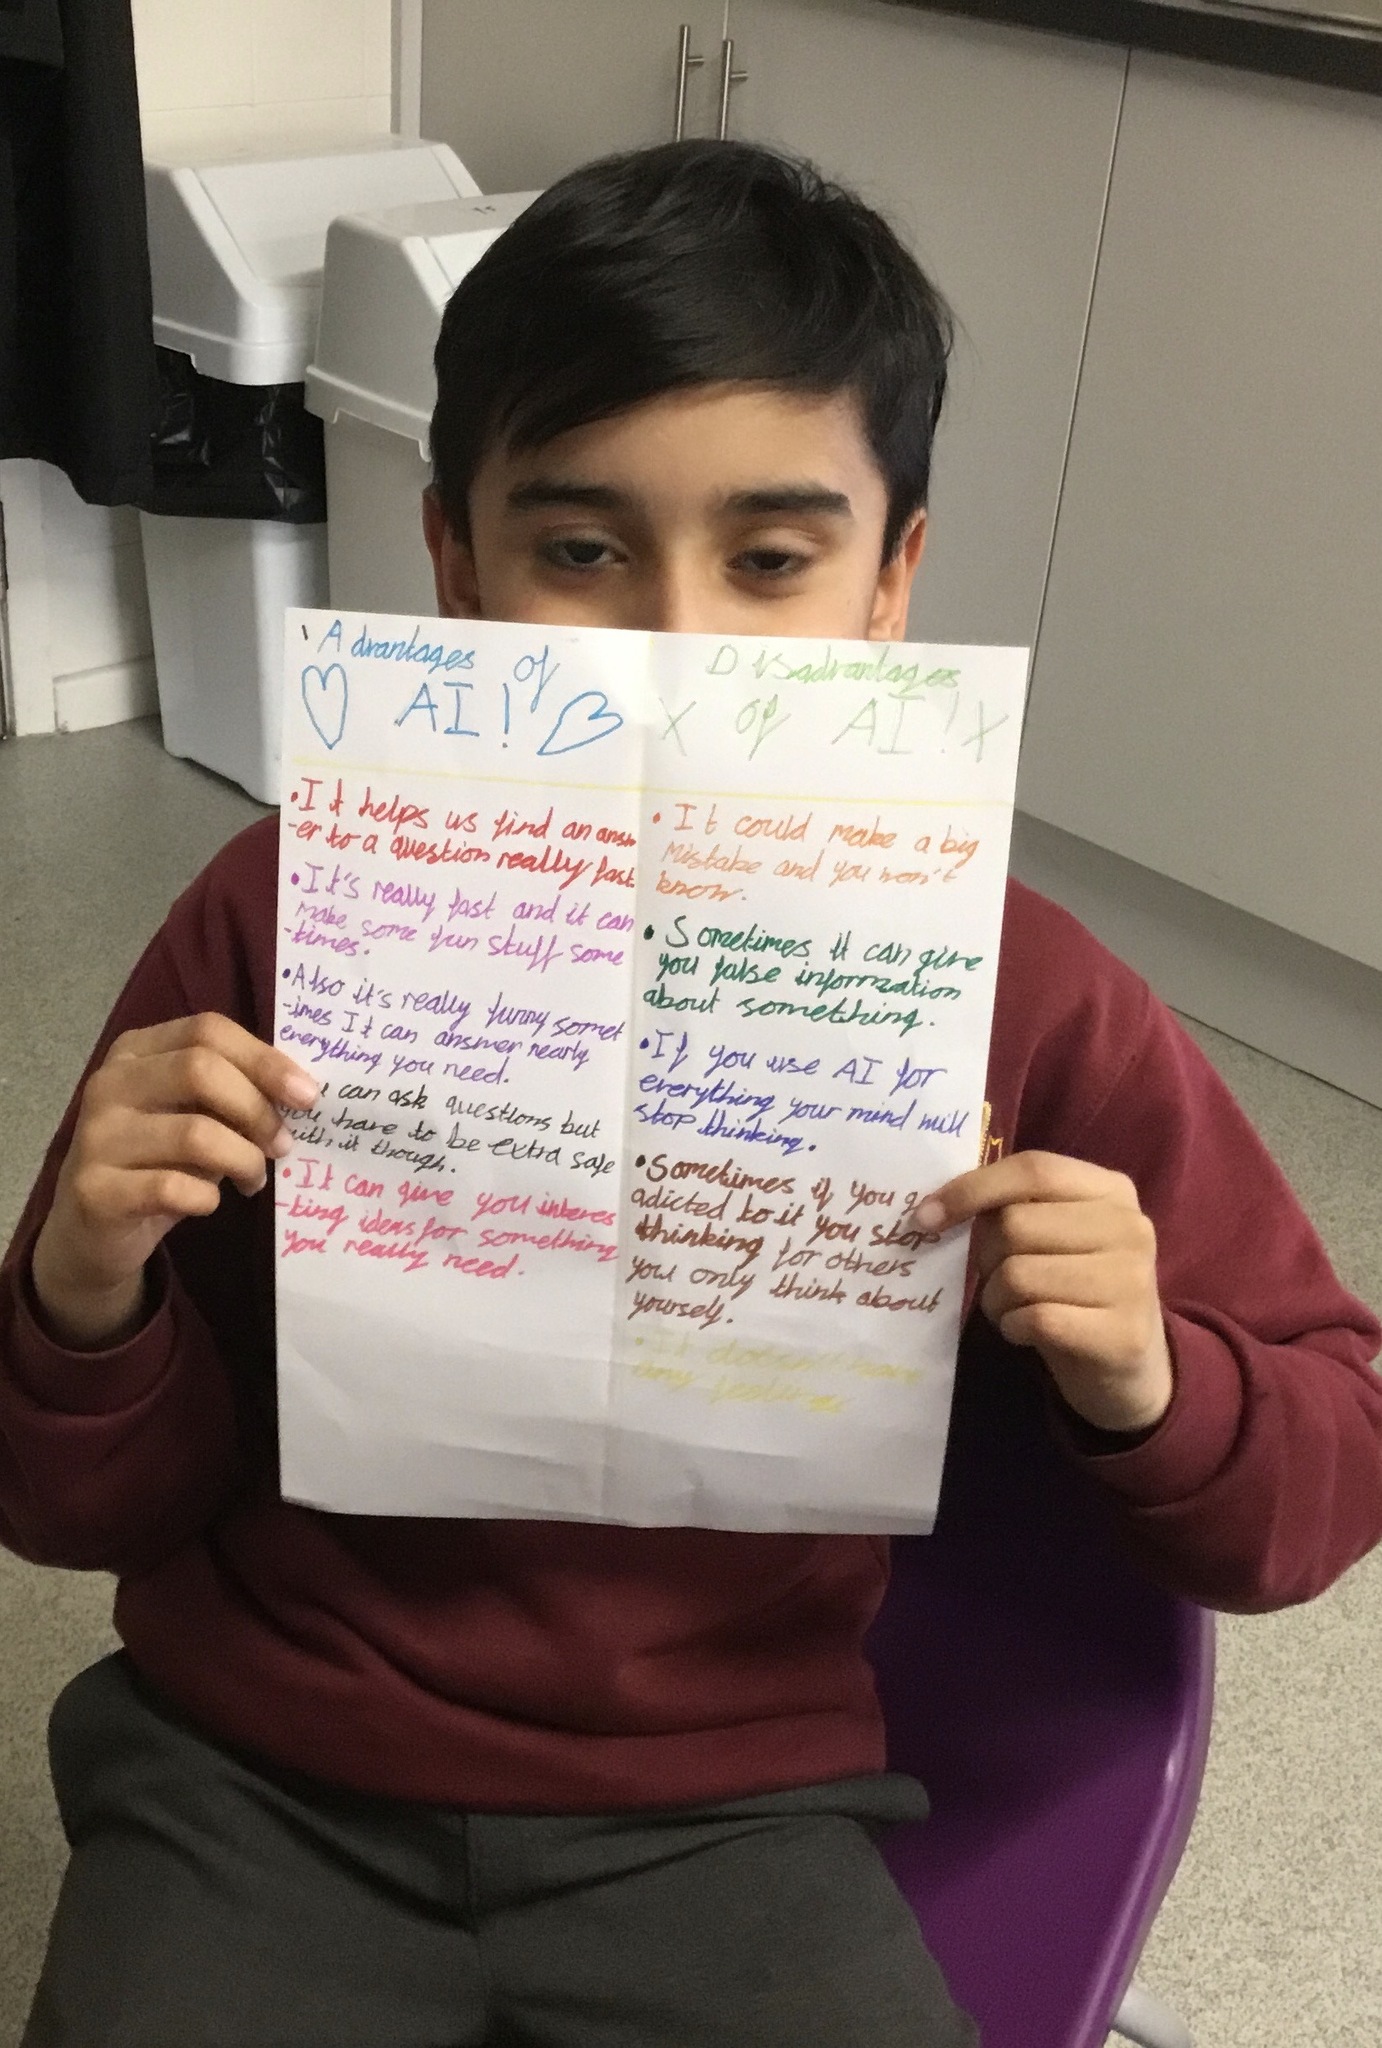 Advantages of
AI!
• It helps us find an answ
-er to a question really fast.
• It's really fast and it can
make some fun stuff some
-times.
• Also it's really funny somet
-imes It can answer nearly
everything you need.
can ask questions but
you have to be extra safe
with it though.
• It can give you interes
-ting ideas for something
you really need.
Disadvantages
X of AI! X
• It could make a big
mistake and you won't
know.
• Sometimes it can give
you false information
about something.
• If you use AI for
everything your mind will
stop thinking.
• Sometimes if you
adicted to it you stop
thinking for others
you only think about
yourself.
• It doesn't have
any feelings